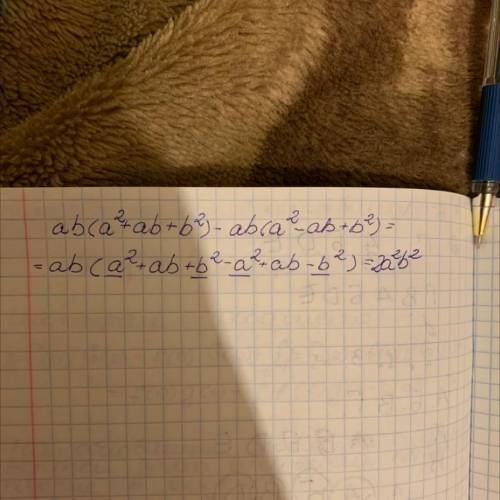 ab(a²+ab+b²)-ab(a²-ab+b²)=
=ab(a²+ab+b²-a²+ab-b²)=2a²b²